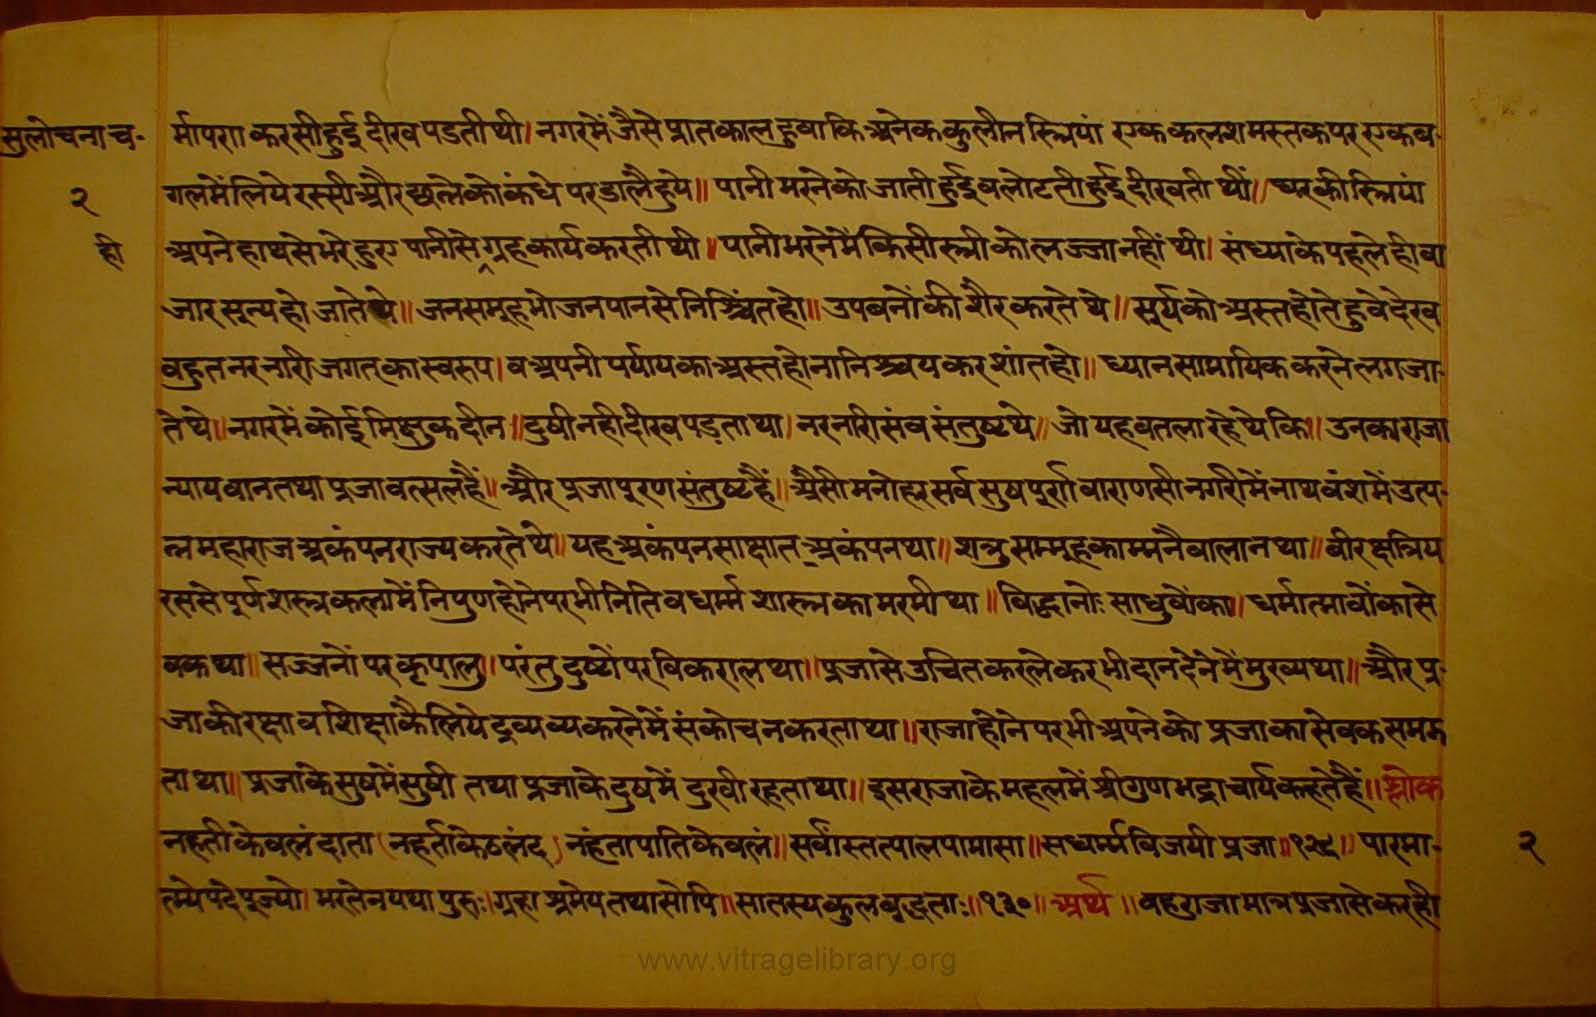 सुलोचनाच- र्मापरा करसीहुई दीखपडतीथी। नगरमें जैसे प्रातकाल हुवा कि अनेक कुलीन स्त्रियां एक कलश मस्तकपर एक व-
२ गलमेंलिये रस्सी और छलेको कंधे परडालै हुये॥ पानी भरनेको जाती हुई व लोटती हुई दीखती थीं॥ घरकी स्त्रियां
ही अपने हाथसे भरे हुए पानीसे ग्रहकार्य करती थी। पानी भरनेमें किसी स्त्रीको लज्जा नहीं थी। संध्याके पहले ही वा
जार सून्य हो जातेथे॥ जनसमूह भोजनपानसे निश्चिंत हो॥ उपबनोंकी शैर करते थे॥ सूर्यको अस्त होते हुवे देख
बहुत नर नारी जगतका स्वरुप। व अपनी पर्यायका अस्त होना निश्चय कर शांत हो॥ ध्यान सामायिक करने लग जा-
तेथे॥ नगरमें कोई भिक्षुक दीन॥ दुषी नही दीख पड़ता था। नर नारी संब संतुष्ट थे॥ जो यह बतला रहे थे कि॥ उनका राजा
न्यायवान तथा प्रजावत्सल हैं॥ और प्रजा पूरण संतुष्ट हैं॥ अैसी मनोहर सर्व सुष पूर्ण वाराणसी नगरीमें नाथवंशमें उत्प-
न्न महाराज अकंपन राज्य करते थे॥ यह अकंपन साक्षात् अकंपन था॥ शत्रु सम्मूहका म्मनैवाला न था॥ बीर क्षत्रिय
रससे पूर्ण शस्त्रकलामें निपुण होनेपर भी निति व धर्म्म शास्त्रका मरमी था॥ विद्धानोः साधुवोंका॥ धर्मात्मावोंका से
वक था॥ सज्जनों पर कृपालु॥ परंतु दुष्टों पर विकराल था॥ प्रजासे उचित कर लेकर भी दान देनेमें मुख्य था॥ और प्र-
जाकी रक्षा व शिक्षाकै लिये द्रव्य व्य करनेमें संकोच न करता था॥ राजा होने पर भी अपनेको प्रजाका सेवक समझ
ता था॥ प्रजाके सुषमें सुषी तथा प्रजाके दुषमें दुखी रहता था॥ इस राजाके महलमें श्री गुणभद्राचार्य कहते हैं॥ श्लोक
नहर्ता केवलं दाता (नहर्ता केठलंद) नहंता पाति केवलं॥ सर्वांस्तत्पालपामासा॥ सधर्म्मविजयी प्रजा॥१२९॥ पारमा- २
त्म्ये पदे पूज्यो। भरतेन यथा पुरुः। गृहा श्रमेय तथा सोपि॥ सा तस्य कुल वृद्धताः॥१३०॥ अर्थ॥ वह राजा मात्र प्रजासे कर ही
www.vitragelibrary.org